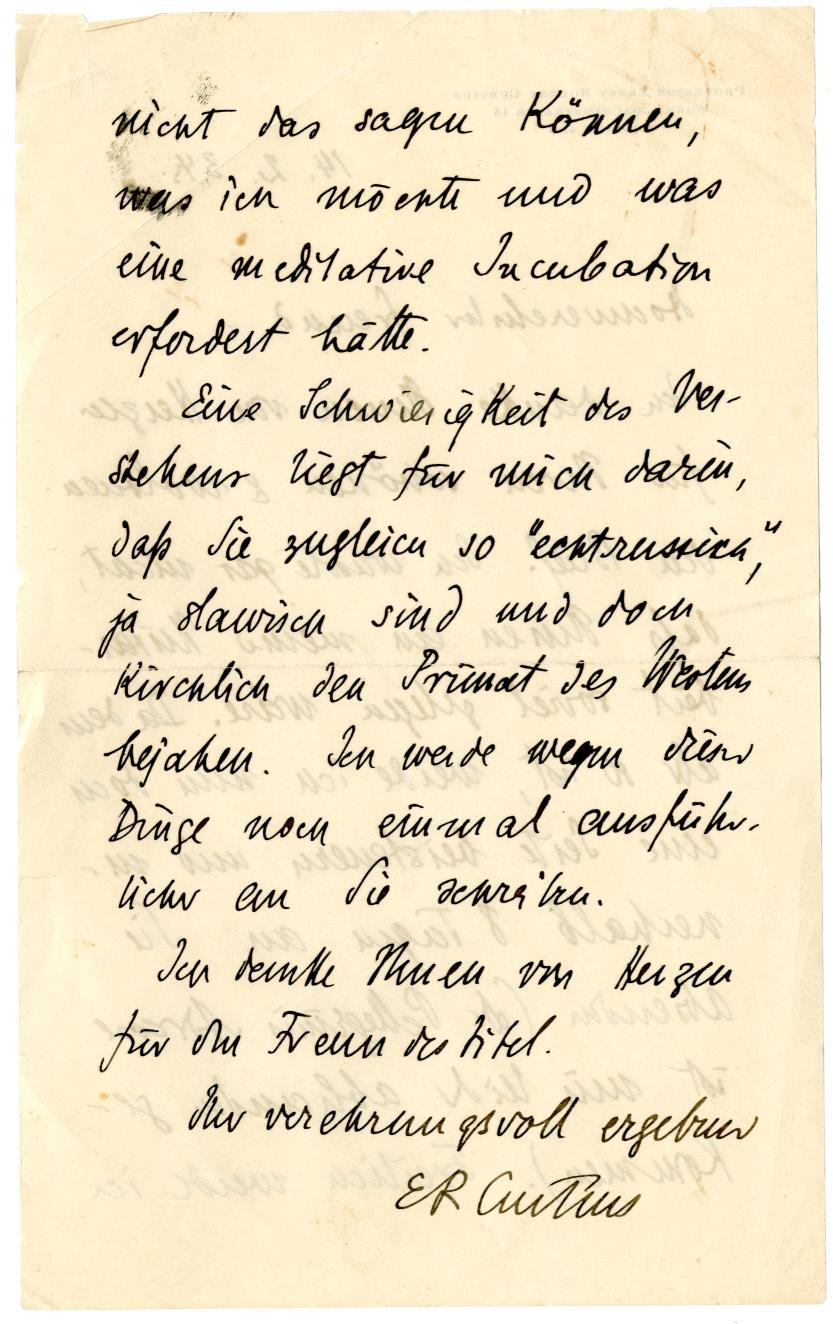 nicht das sagen können,
was ich möchte und was
eine meditative Incubation
erfordert hätte.
Eine Schwierigkeit des Ver-
stehens liegt für mich darin,
daß Sie zugleich so "echtrussisch,"
ja slawisch sind und doch
kirchlich den Primat des Westens
bejahen. Ich werde wegen dieser
Dinge noch einmal ausführ-
licher an Sie schreiben.
Ich danke Ihnen von Herzen
für den Freundestitel.
Ihr verehrungsvoll ergebener
ER Curtius